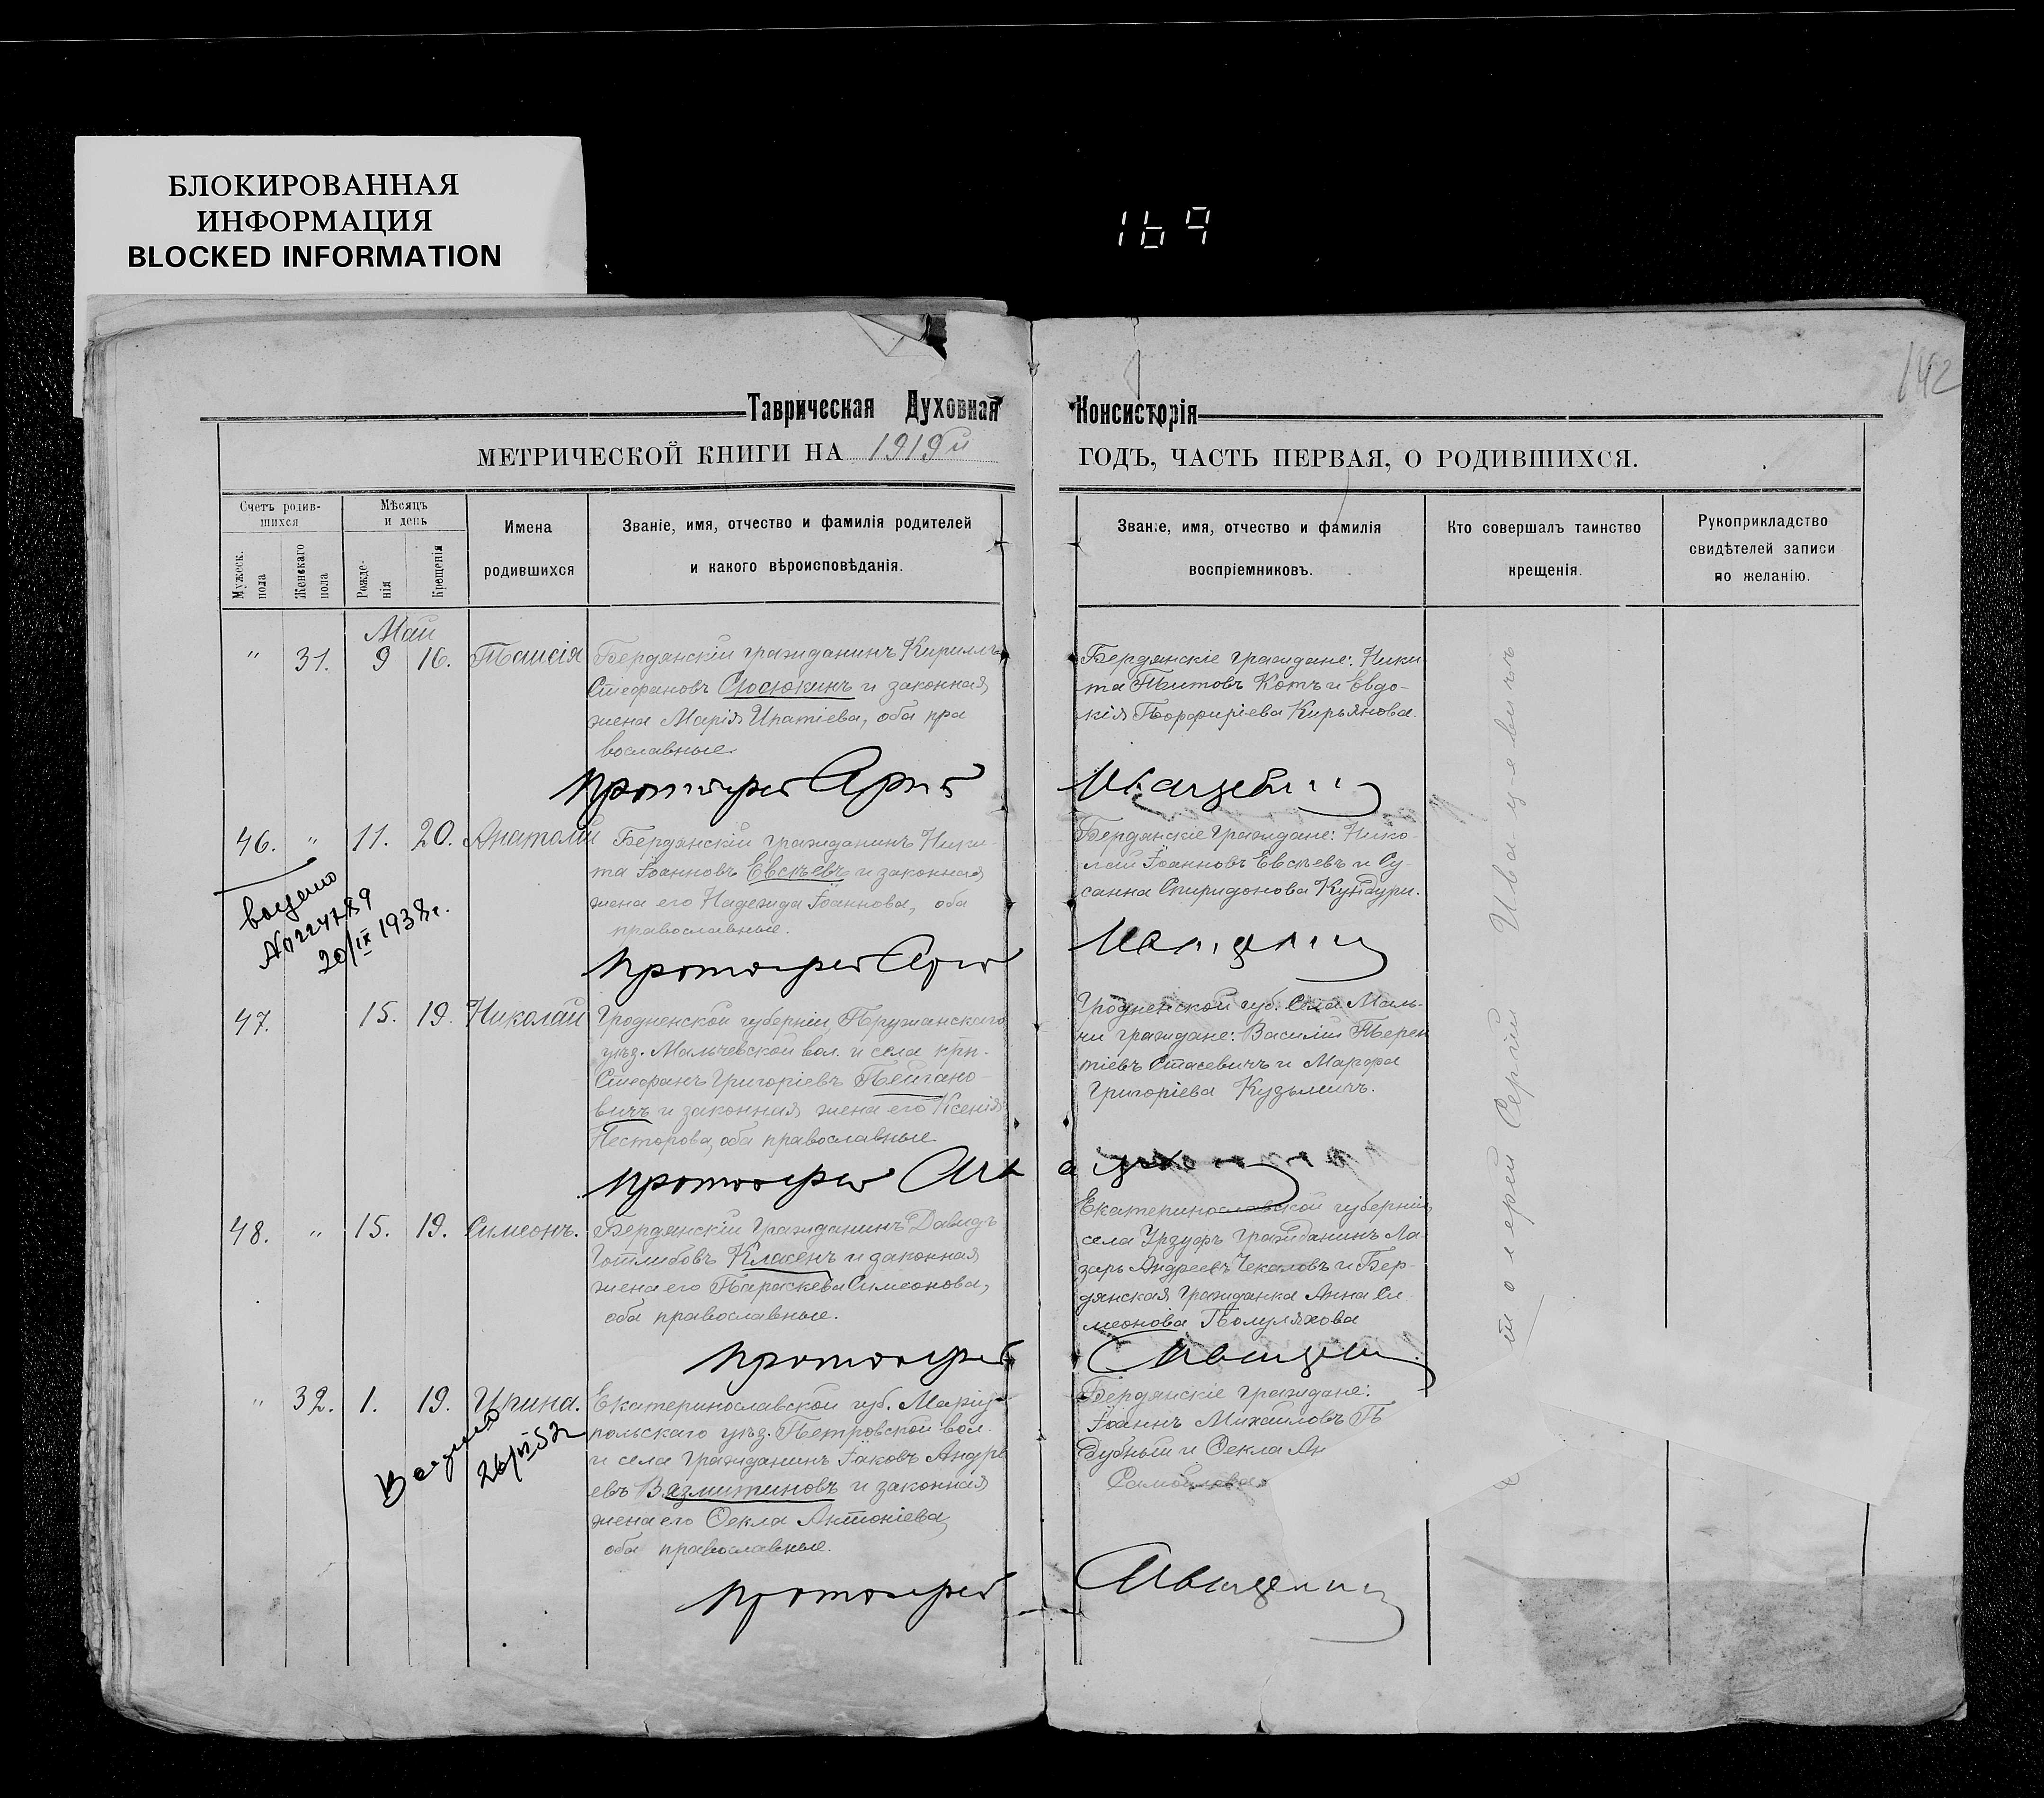 БЛОКИРОВАННАЯ
ИНФОРМАЦИЯ
BLOCKED INFORMATION
169
142
Таврическая Духовная Консисторія
МЕТРИЧЕСКОЙ КНИГИ НА 1919й ГОДЪ, ЧАСТЬ ПЕРВАЯ, О РОДИВШИХСЯ.
Счетъ родив-
шихся
Мужеск. пола
Женскаго пола
Мѣсяцъ
и день
Рожде-
нія
Крещенія
Имена
родившихся
Званіе, имя, отчество и фамилія родителей
и какого вѣроисповѣданія.
Званіе, имя, отчество и фамилія
воспріемниковъ.
Кто совершалъ таинство
крещенія.
Рукоприкладство
свидѣтелей записи
по желанію.
Май
" 31. 9 16. Таисія
Бердянскій гражданинъ Кириллъ
Стефановъ Сюсюкинъ и законная
жена Марія Ипатіева, оба пра
вославные.
Бердянскіе граждане: Ники
та Титовъ Котъ и Евдо-
кія Порфиріева Кирьянова.
Протоіерей
46. " 11. 20. Анатолій
Бердянскій гражданинъ Ники
та Іоанновъ Евсѣевъ и законная
жена его Надежда Іоаннова, оба
православные.
Бердянскіе граждане: Нико
лай Іоанновъ Евсѣевъ и Су-
санна Спиридонова Кундури.
20/IX 1938г.
Протоіерей
47. 15. 19. Николай
Гродненской губерніи, Пружанскаго
уѣзд. Мальчевской вол. и села крн.
Стефанъ Григоріевъ Пейгано-
вичъ и законная жена его Ксенія
Несторова, оба православные.
Гродненской губ. села Маль-
чи граждане: Василій Терен
тіевъ Стасевичъ и Марфа
Григоріева Кузьмичъ.
Протоіерей
48. " 15. 19. Симеонъ.
Бердянскій гражданинъ Давидъ
Готлибовъ Класенъ и законная
жена его Параскева Симеонова,
оба православные.
Екатеринославской губерніи,
села Урзуфъ гражданинъ Ла
зарь Андреевъ Чекаловъ и Бер-
дянская гражданка Анна Си
меонова Полуляхова
Протоіерей
" 32. 1. 19. Ирина.
Екатеринославской губ. Маріу-
польскаго уѣзд. Петровской вол.
и села гражданинъ Іаковъ Андре
евъ Вязмитиновъ и законная
жена его Ѳекла Антоніева,
оба православные.
Бердянскіе граждане:
Іоаннъ Михайловъ П
Ѳекла Ан
Самойлова
26/VI 52
Протоіерей
Протоіерей Сергій Ивацевичъ